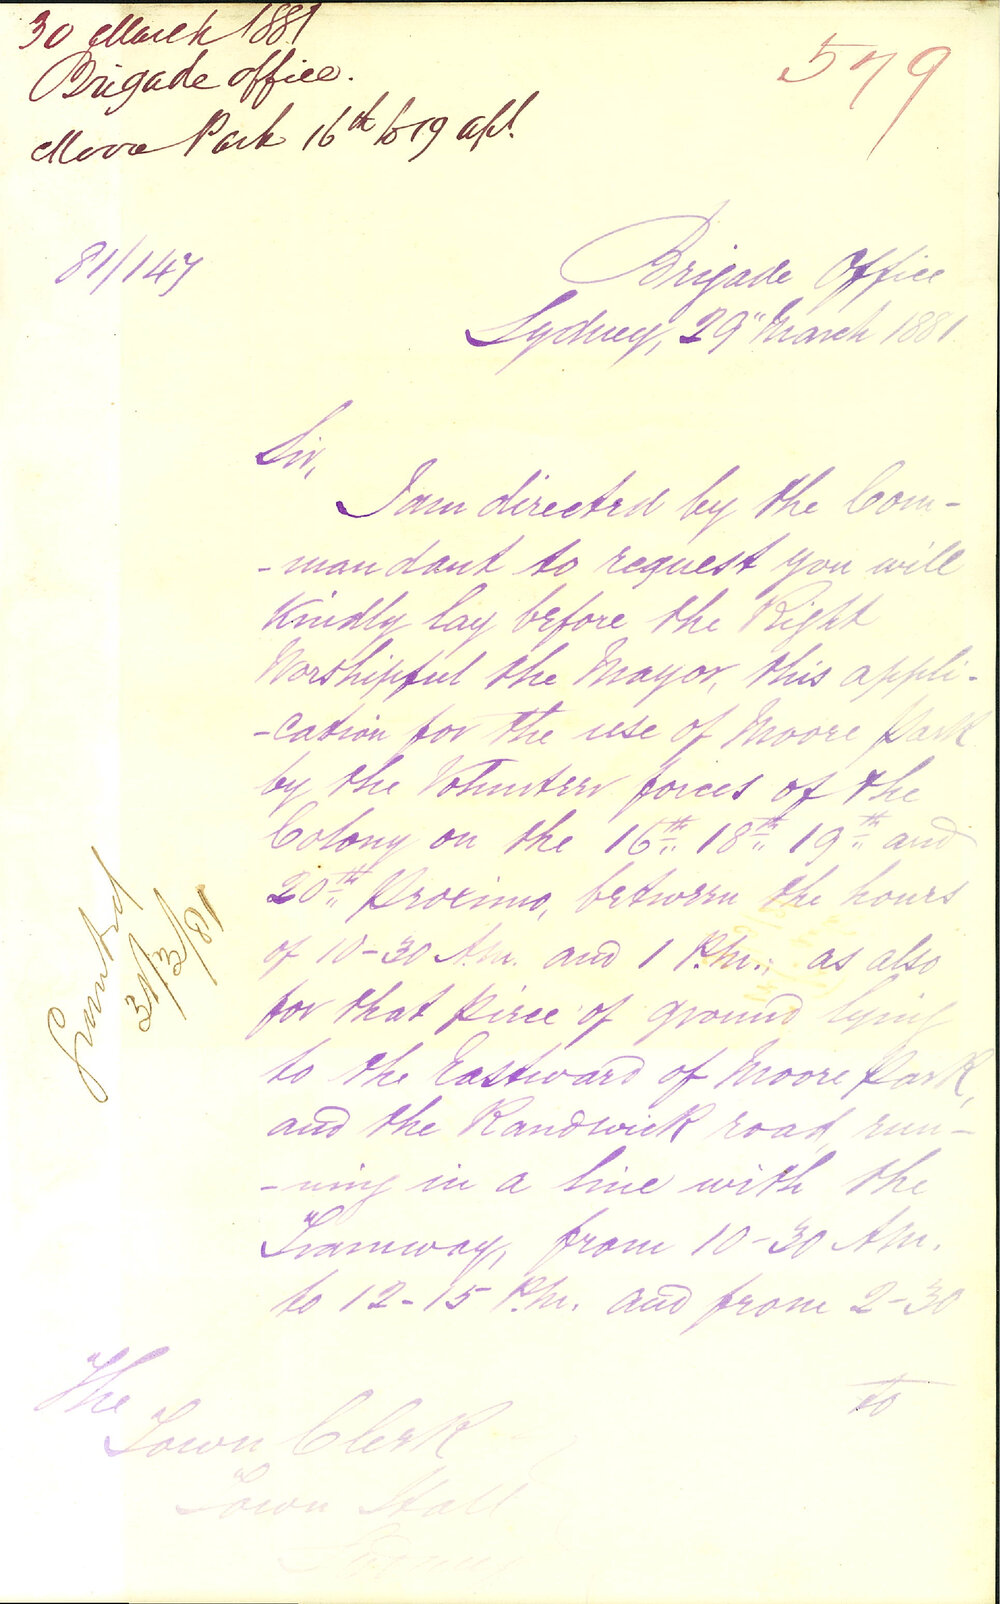 30 March 1881
Brigade Office.
Moore Park 16th to 19 Apl.
579
81/147
Brigade Office
Sydney, 29" March 1881
Sir,
I am directed by the Com-
-mandant to request you will
kindly lay before the Right
Worshipful the Mayor, this appli-
-cation for the use of Moore Park
by the Volunteer forces of the
Colony on the 16th 18th 19th and
20th Proximo, between the hours
of 10-30 A.m. and 1 P.m.; as also
for that piece of ground lying
to the Eastward of Moore Park,
and the Randwick road, run-
-ning in a line with the
Tramway, from 10-30 Am.
to 12-15 P.m. and from 2-30
to
Granted
31/3/81
The
Town Clerk
Town Hall
Sydney